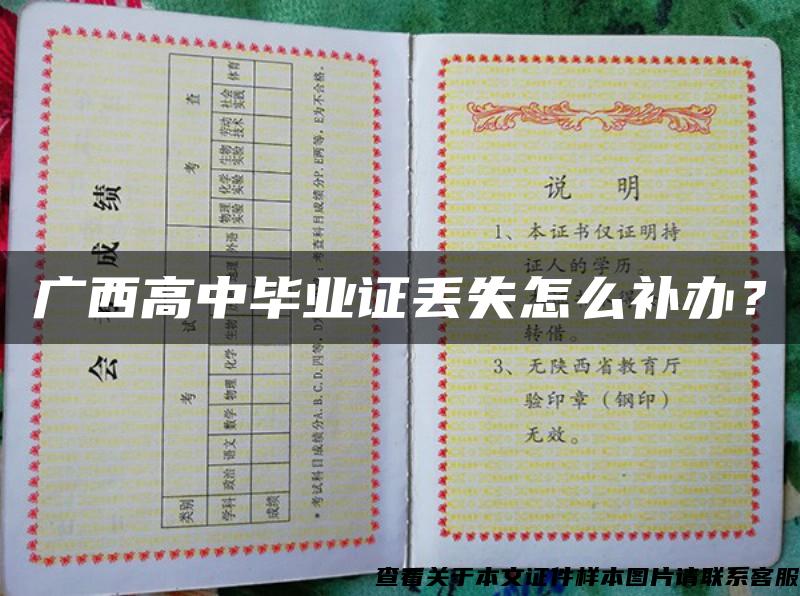 广西高中毕业证丢失怎么补办？
会 成 绩
类别 考 试 考 查
学科 政治 语文 数学 物理 化学 生物 外语 物理实验 化学实验 生物实验 劳动技术 社会实践 体育
成绩
*考试科目成绩分A.B.C.D.四等,D 考查科目成绩分P、E两等,E为不合格。
说 明
1、本证书仅证明持
证人的学历。
转借。
3、无陕西省教育厅
验印章（钢印）
无效。
查看关于本文证件样本图片请联系客服